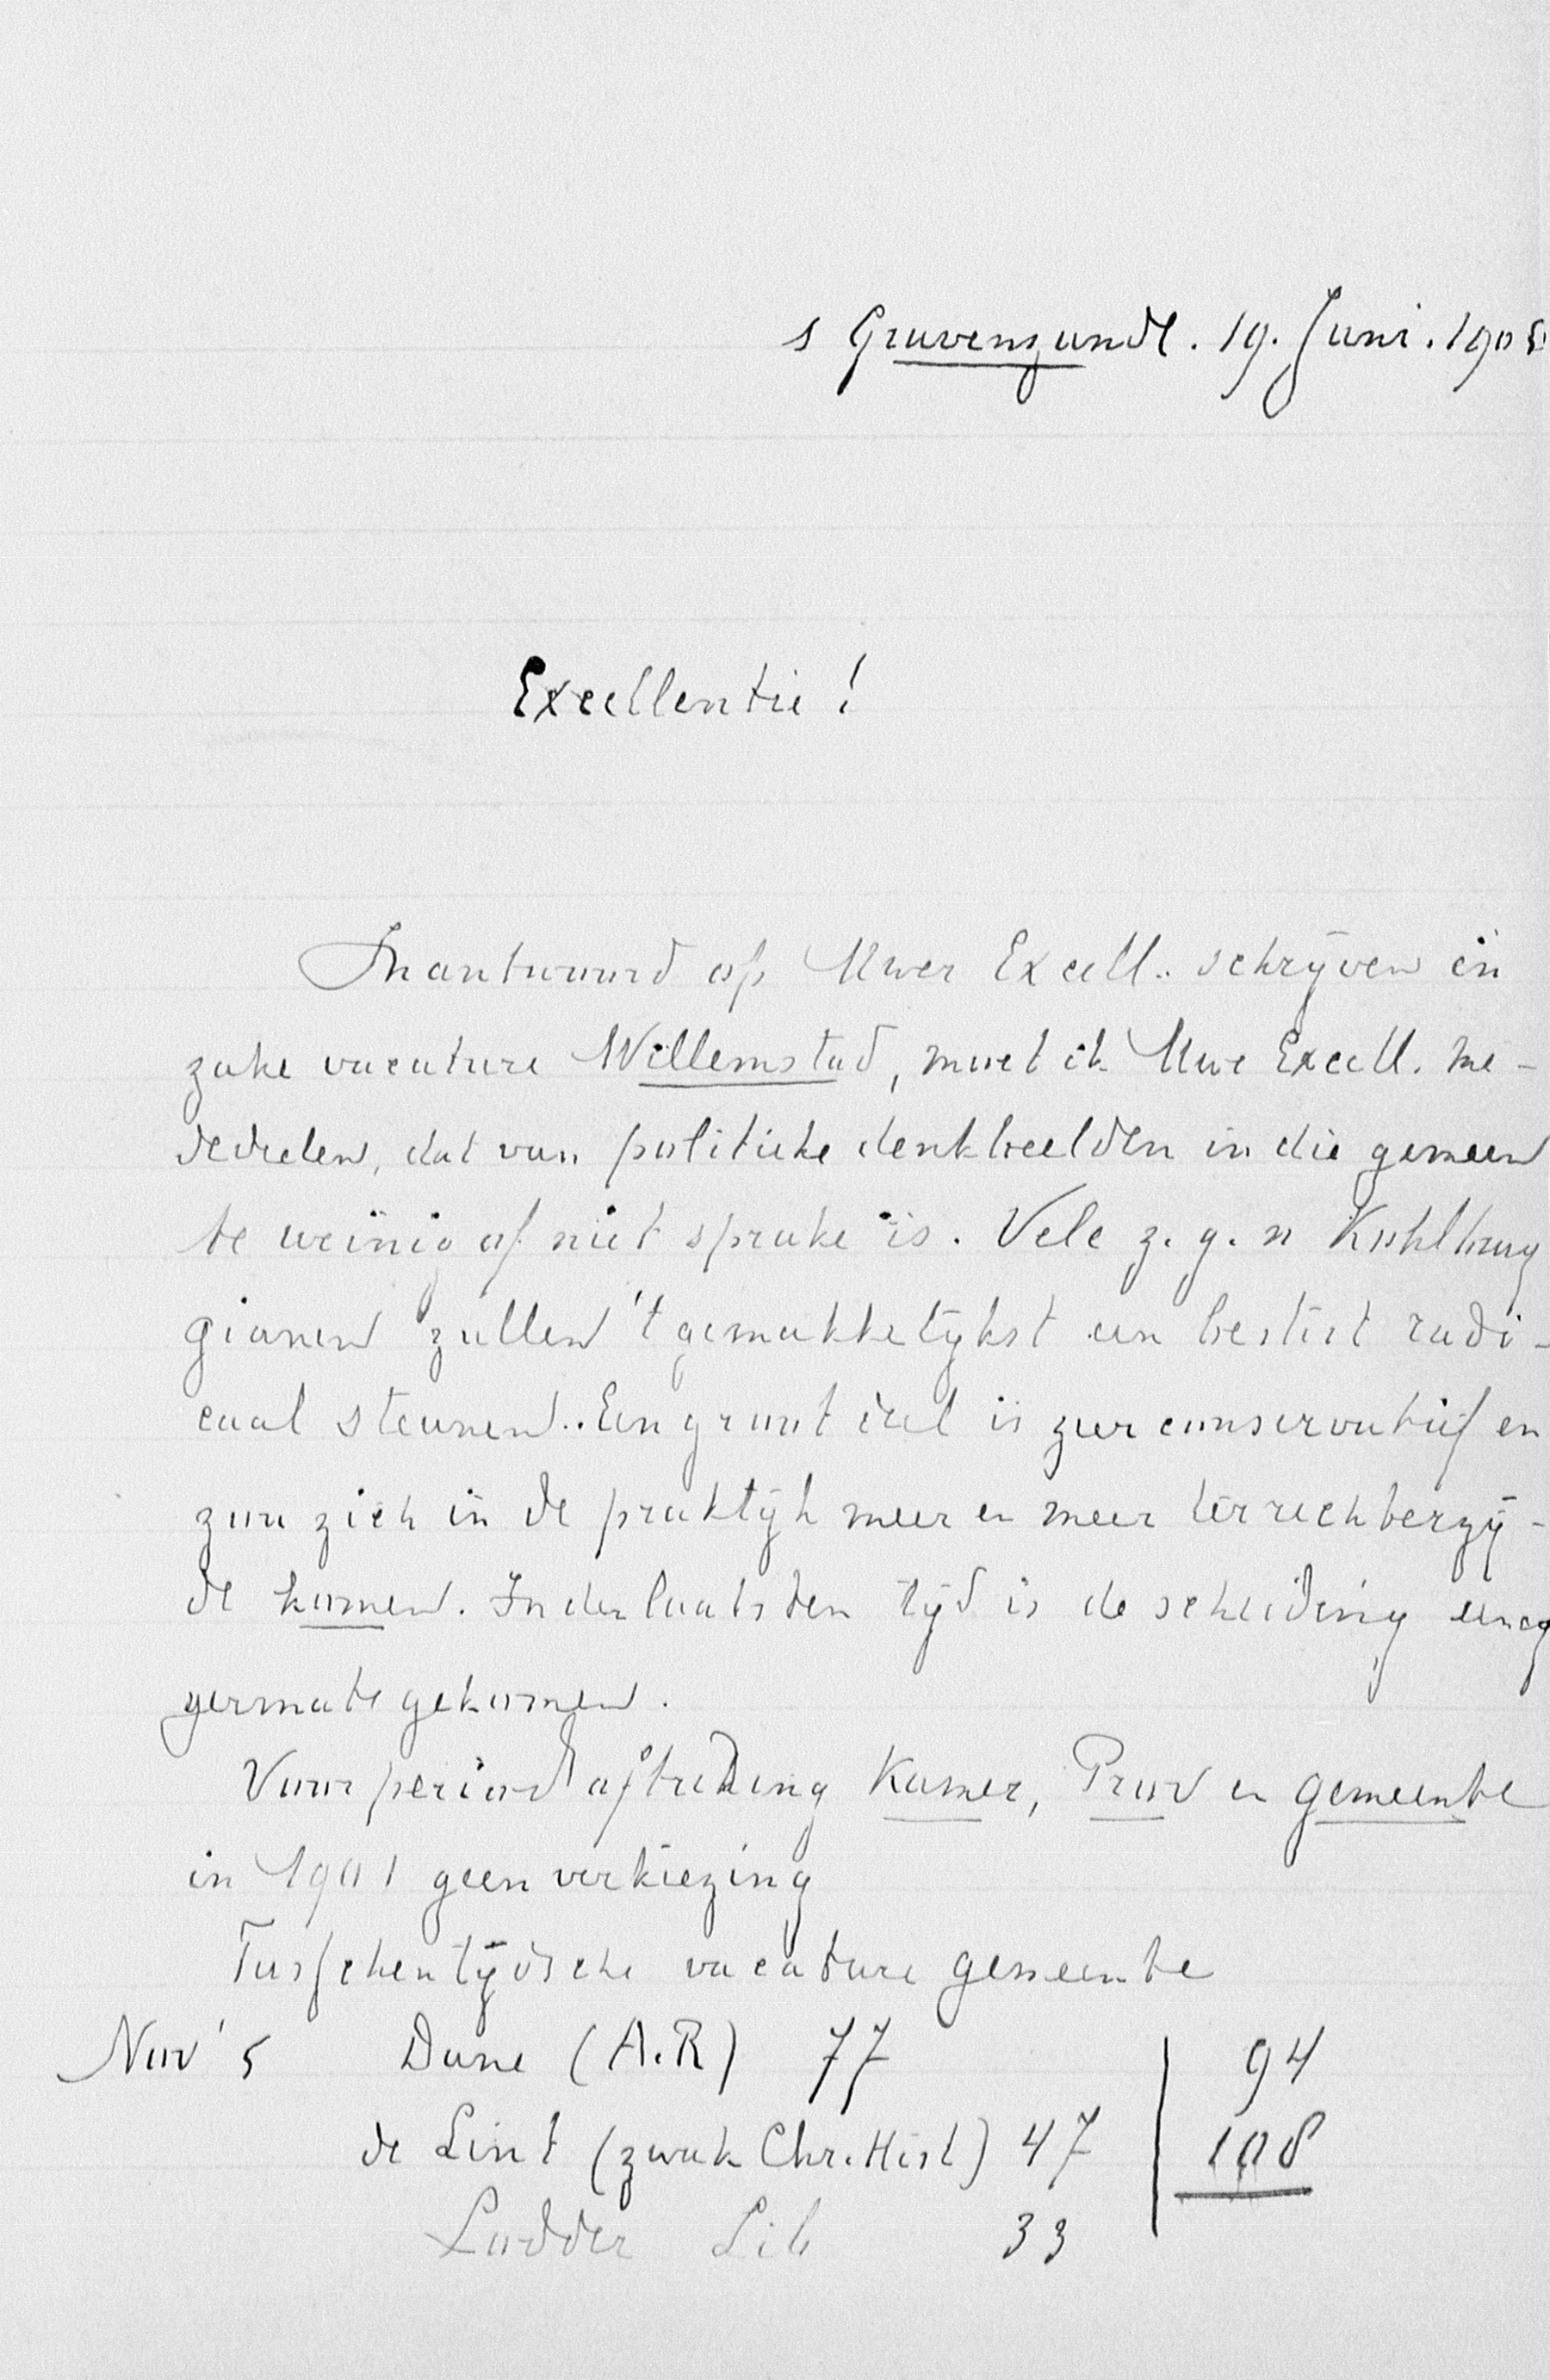 s Gravenzande. 19. Juni. 190
Excellentie!
In antwoord op Uwer Excell. schrijven in
zake vacature Willemstad, moet ik Uwe Excell. me-
dedeelen, dat van politieke denkbeelden in die gemeen
te weinig of niet sprake is. Vele z.g.n Kohlbrug
gianen zullen 't gemakkelijkst een beslist radi-
caal steunen. Een groot deel is zeer conservatief en
zou zich in de praktijk meer en meer ter rechterzij-
de komen. In den laatsten tijd is de scheiding eenig
germate gekomen.
Voor period aftreding Kamer, Prov en gemeente
in 1901 geen verkiezing
Tusschentijdsche vacature gemeente
Nov '5 Dane (A.R) 77 94
de Lint (zwak Chr. Hist) 47 108
Lodder Lib 33